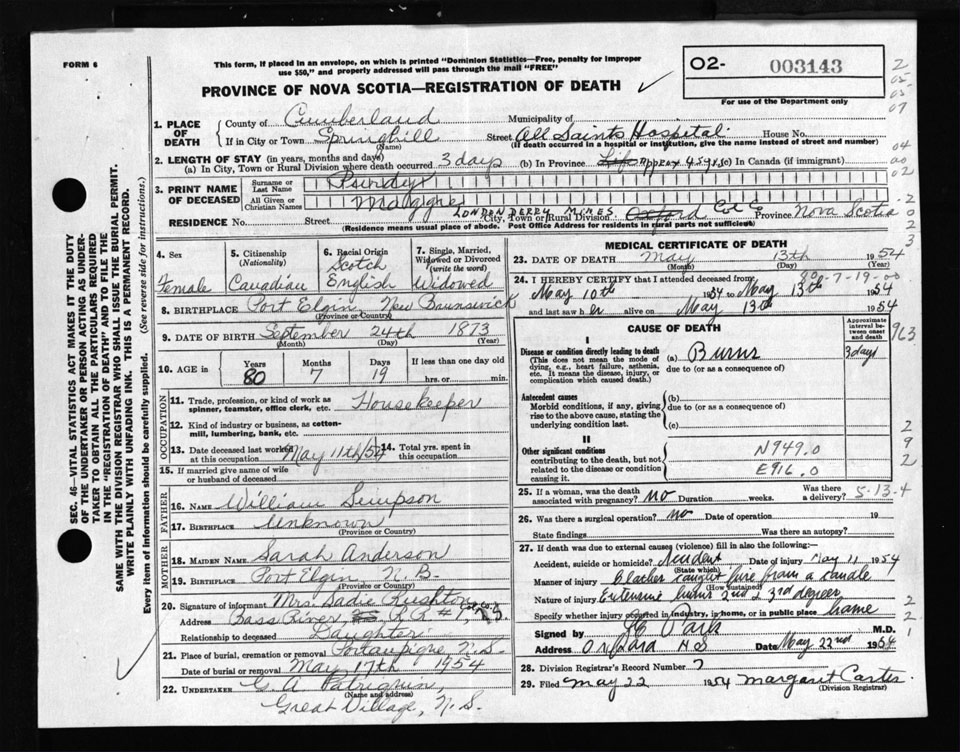 FORM 6
This form, if placed in an envelope, on which is printed "Dominion Statistics—Free, penalty for improper
use $50," and properly addressed will pass through the mail "FREE"
O2- 003143
For use of the Department only
PROVINCE OF NOVA SCOTIA—REGISTRATION OF DEATH
1. PLACE OF DEATH
County of Cumberland Municipality of
If in City or Town Springhill (Name) Street All Saints Hospital. House No.
(If death occurred in a hospital or institution, give the name instead of street and number)
2. LENGTH OF STAY (in years, months and days)
(a) In City, Town or Rural Division where death occurred 3 days (b) In Province Life approx 45 yrs (c) in Canada (if immigrant)
3. PRINT NAME OF DECEASED
Surname or Last Name
All Given or Christian Names Maggie
RESIDENCE No. Street LONDONDERRY MINES City, Town or Rural Division Oxford Col Co Province Nova Scotia
(Residence means usual place of abode. Post Office Address for residents in rural parts not sufficient)
4. Sex Female
5. Citizenship (Nationality) Canadian
6. Racial Origin Scotch English
7. Single, Married, Widowed or Divorced (write the word) Widowed
8. BIRTHPLACE Port Elgin, New Brunswick
(Province or Country)
9. DATE OF BIRTH September 24th 1873
(Month) (Day) (Year)
10. AGE in Years 80 Months 7 Days 19 If less than one day old
hrs. or min.
OCCUPATION
11. Trade, profession, or kind of work as spinner, teamster, office clerk, etc. Housekeeper
12. Kind of industry or business, as cotton-mill, lumbering, bank, etc.
13. Date deceased last worked at this occupation May 11th/54 14. Total yrs. spent in this occupation
15. If married give name of wife or husband of deceased
FATHER
16. NAME William Simpson
17. BIRTHPLACE Unknown
(Province or Country)
MOTHER
18. MAIDEN NAME Sarah Anderson
19. BIRTHPLACE Port Elgin, N.B.
(Province or Country)
20. Signature of informant Mrs. Sadie Rushton
Address Bass River, R.R #1, Col. Co. N.S.
Relationship to deceased Daughter
21. Place of burial, cremation or removal Portaupique, N.S.
Date of burial or removal May 17th 1954
22. UNDERTAKER C. A Patriquin
(Name and address)
Great Village, N.S.
MEDICAL CERTIFICATE OF DEATH
23. DATE OF DEATH May 13th 1954
(Month) (Day) (Year)
206-7-19-00
24. I HEREBY CERTIFY that I attended deceased from
May 10th 1954 to May 13th 1954
and last saw her alive on May 13th 1954
CAUSE OF DEATH
Approximate interval between onset and death
I
Disease or condition directly leading to death
(This does not mean the mode of dying, e.g., heart failure, asthenia, etc. It means the disease, injury, or complication which caused death.)
(a) Burns 3 days
due to (or as a consequence of)
Antecedent causes
Morbid conditions, if any, giving rise to the above cause, stating the underlying condition last.
(b)
due to (or as a consequence of)
(c)
II
Other significant conditions
contributing to the death, but not related to the disease or condition causing it.
N949.0
E916.0
25. If a woman, was the death associated with pregnancy? no Duration weeks. Was there a delivery? 5-13-4
26. Was there a surgical operation? no Date of operation 19
State findings Was there an autopsy?
27. If death was due to external causes (violence) fill in also the following:—
Accident, suicide or homicide? Accident Date of injury May 11 1954
(State which)
Manner of injury Clothes caught fire from a candle
(How sustained)
Nature of injury Extensive burns 2nd & 3rd degree
Specify whether injury occurred in industry, in home, or in public place home
Signed by M.D.
Address Oxford NS Date May 22nd 1954
28. Division Registrar's Record Number 7
29. Filed May 22 1954 Margaret Carter
(Division Registrar)
SEC. 46—VITAL STATISTICS ACT MAKES IT THE DUTY
OF THE UNDERTAKER OR PERSON ACTING AS UNDER-
TAKER TO OBTAIN ALL THE PARTICULARS REQUIRED
IN THE "REGISTRATION OF DEATH" AND TO FILE THE
SAME WITH THE DIVISION REGISTRAR WHO SHALL ISSUE THE BURIAL PERMIT.
WRITE PLAINLY WITH UNFADING INK. THIS IS A PERMANENT RECORD.
Every item of information should be carefully supplied. (See reverse side for instructions.)
2
05
05
07
04
00
02
2
0
2
3
963
2
9
2
2
2
1